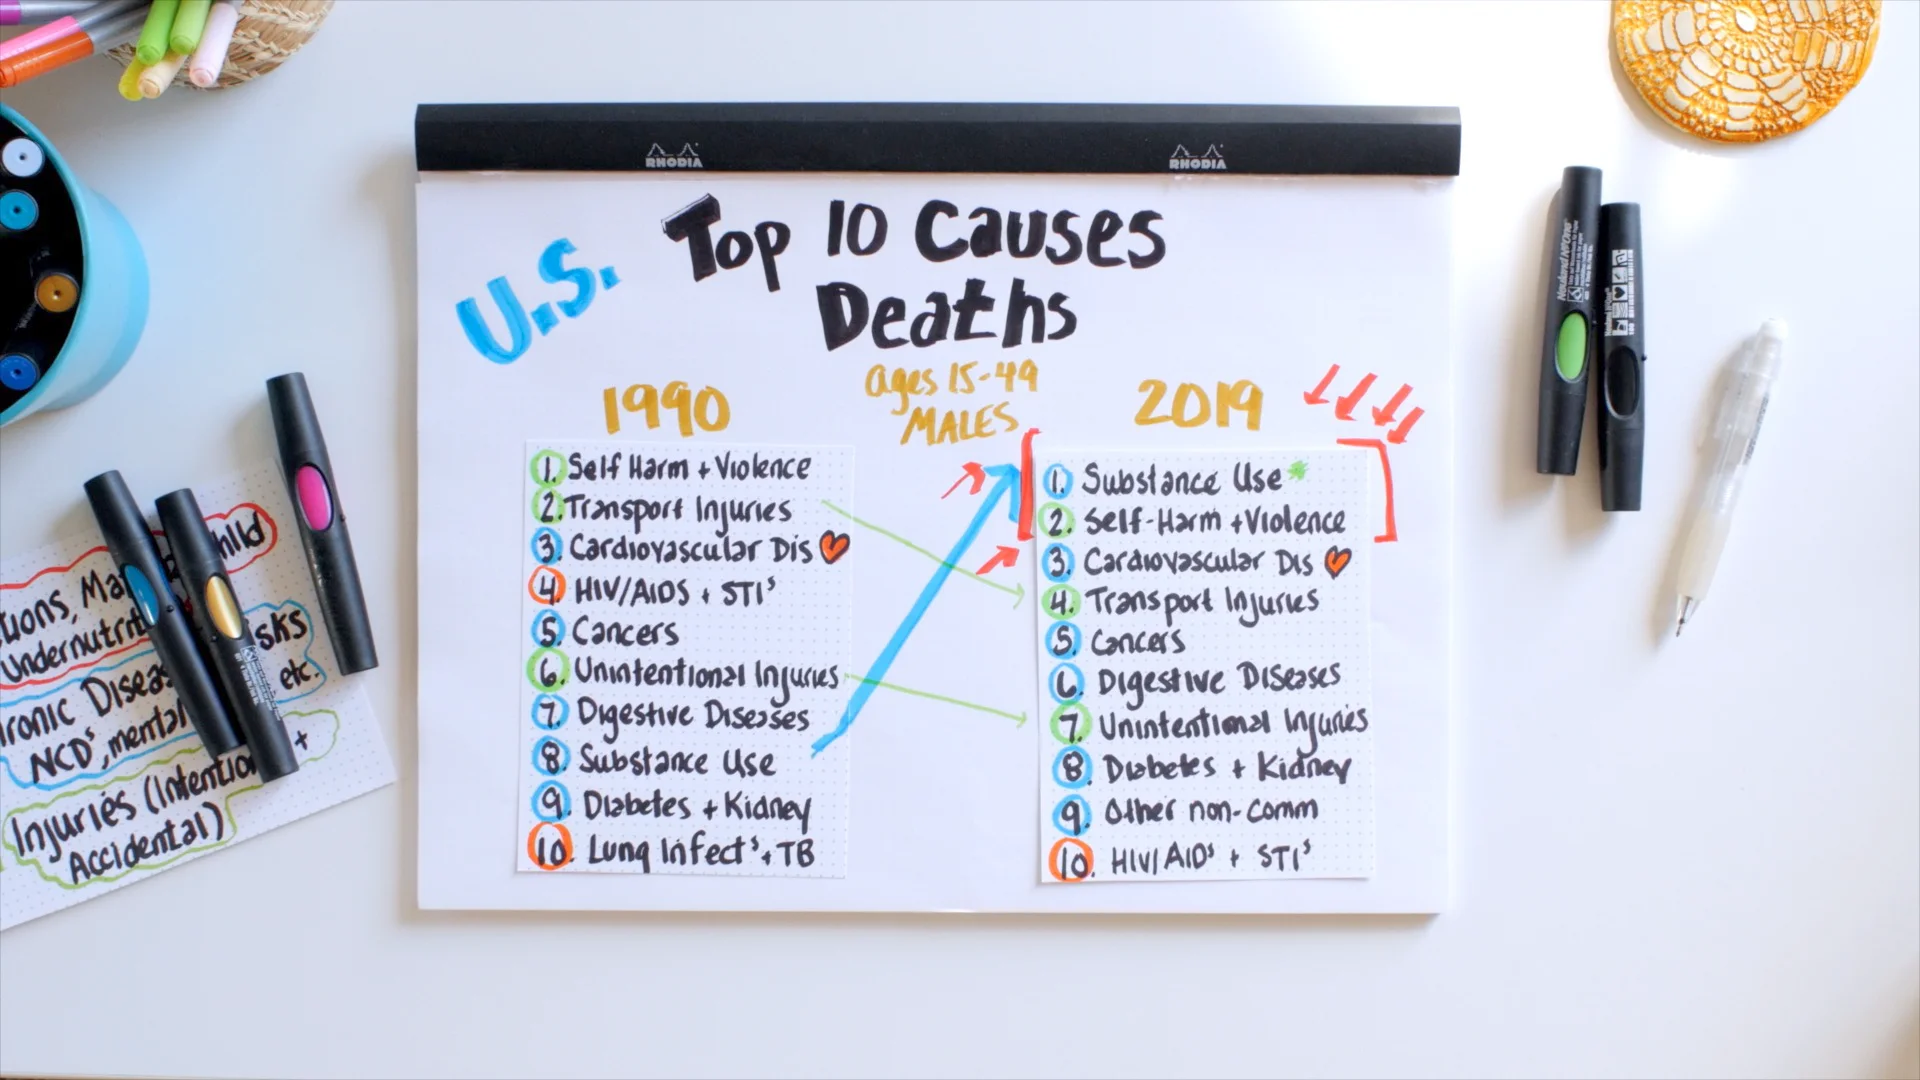 RHODIA
RHODIA
U.S.
Top 10 Causes
Deaths
Ages 15-49
MALES
1990
1. Self Harm + Violence
2. Transport Injuries
3. Cardiovascular Dis
4. HIV/AIDS + STIs
5. Cancers
6. Unintentional Injuries
7. Digestive Diseases
8. Substance Use
9. Diabetes + Kidney
10. Lung Infects + TB
2019
1. Substance Use
2. Self-Harm + Violence
3. Cardiovascular Dis
4. Transport Injuries
5. Cancers
6. Digestive Diseases
7. Unintentional Injuries
8. Diabetes + Kidney
9. Other non-comm
10. HIV/AIDs + STIs
etc.
NCDs, mental
+
Injuries (Intentio
Accidental)
Neuland